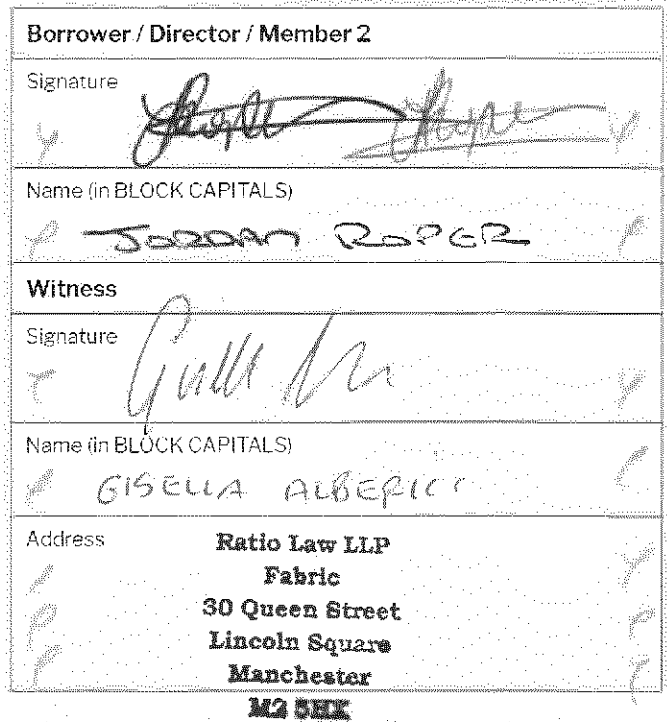 Borrower / Director / Member 2
Signature
Name (in BLOCK CAPITALS)
JORDAN ROPER
Witness
Signature
Name (in BLOCK CAPITALS)
GISELLA ALBERICI
Address
Ratio Law LLP
Fabric
30 Queen Street
Lincoln Square
Manchester
M2 5HX